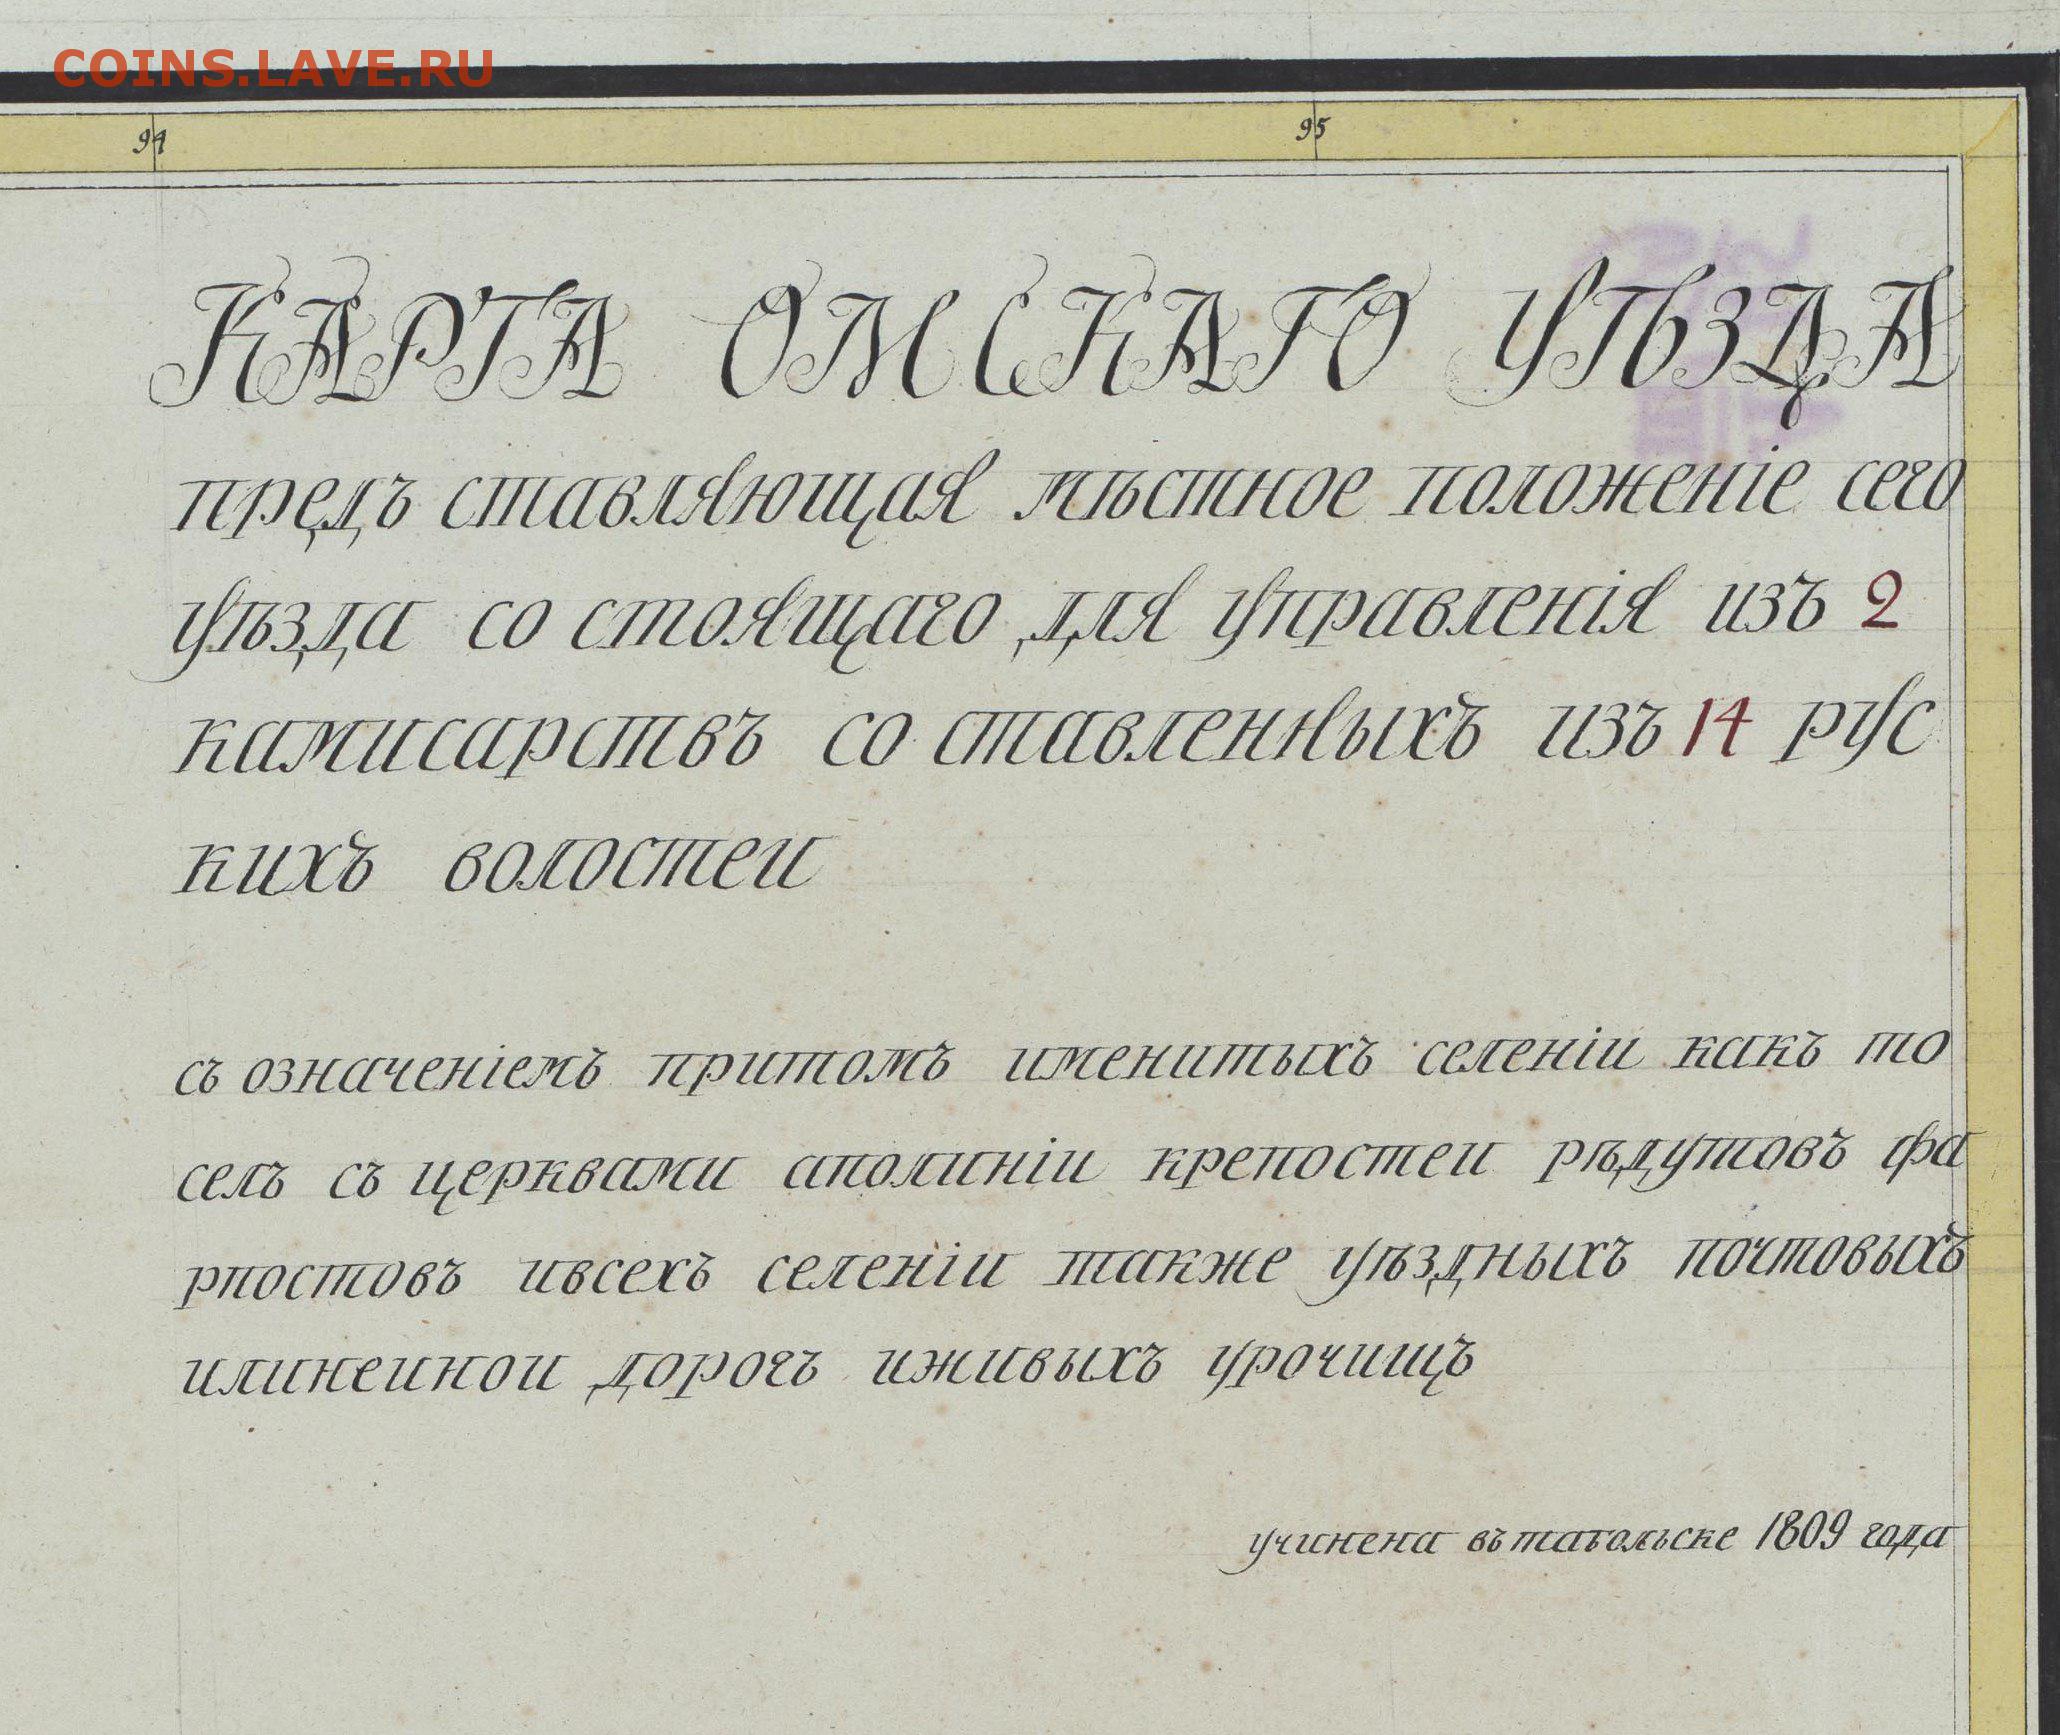 COINS.LAVE.RU
94 95
КАРТА ОМСКАГО УѢЗДА
предъ ставляющая мѣстное положеніе сего
уѣзда со стоящаго для управленія изъ 2
камисарствъ со ставленныхъ изъ 14 рус
кихъ волостеи
съ означеніемъ притомъ именитыхъ селеніи какъ то
селъ съ церквами аполиніи крепостеи рѣдутовъ фа
рпостовъ ивсехъ селеніи также уѣздныхъ почтовыхъ
илинеинои дорогъ иживыхъ урочищъ
учинена въ табольске 1809 года